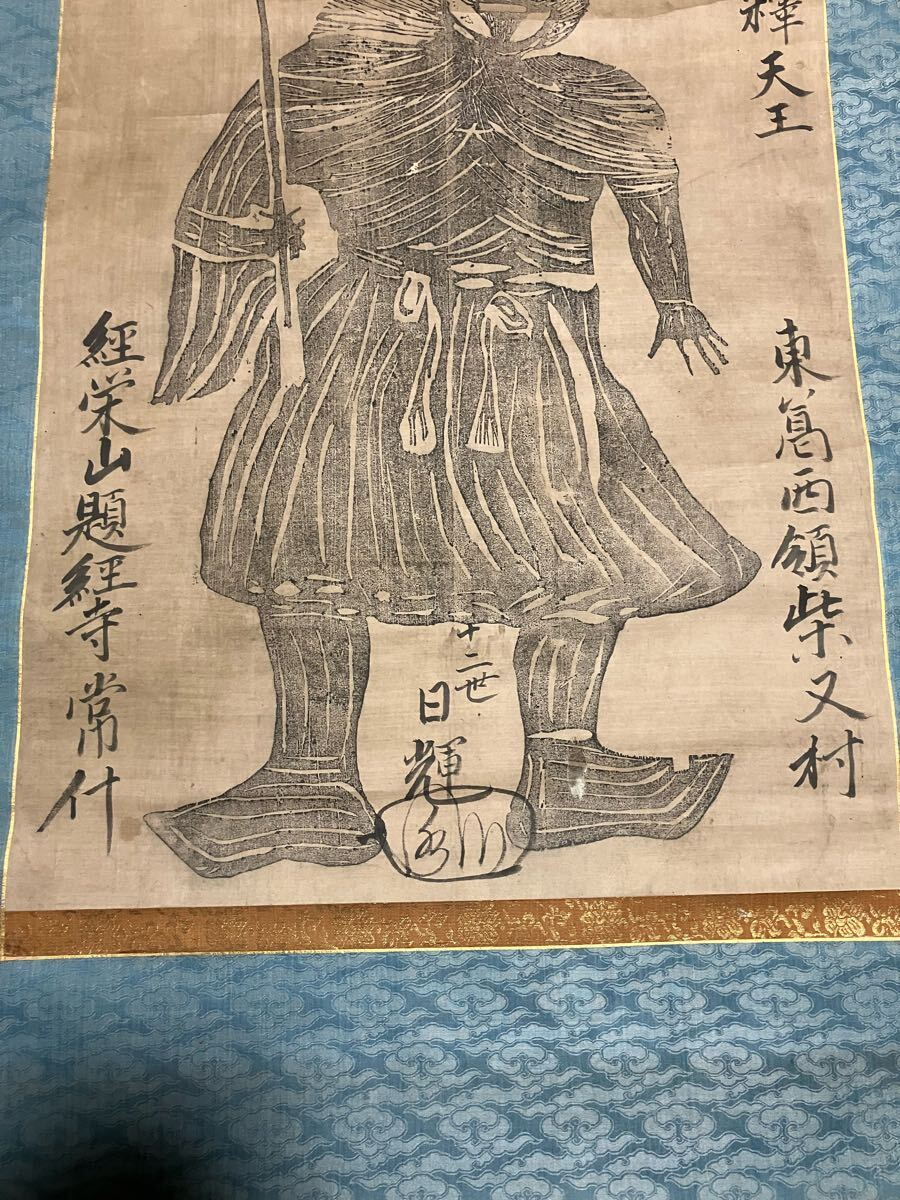 釋天王
東葛西領柴又村
十二世
日輝
經栄山題經寺常什